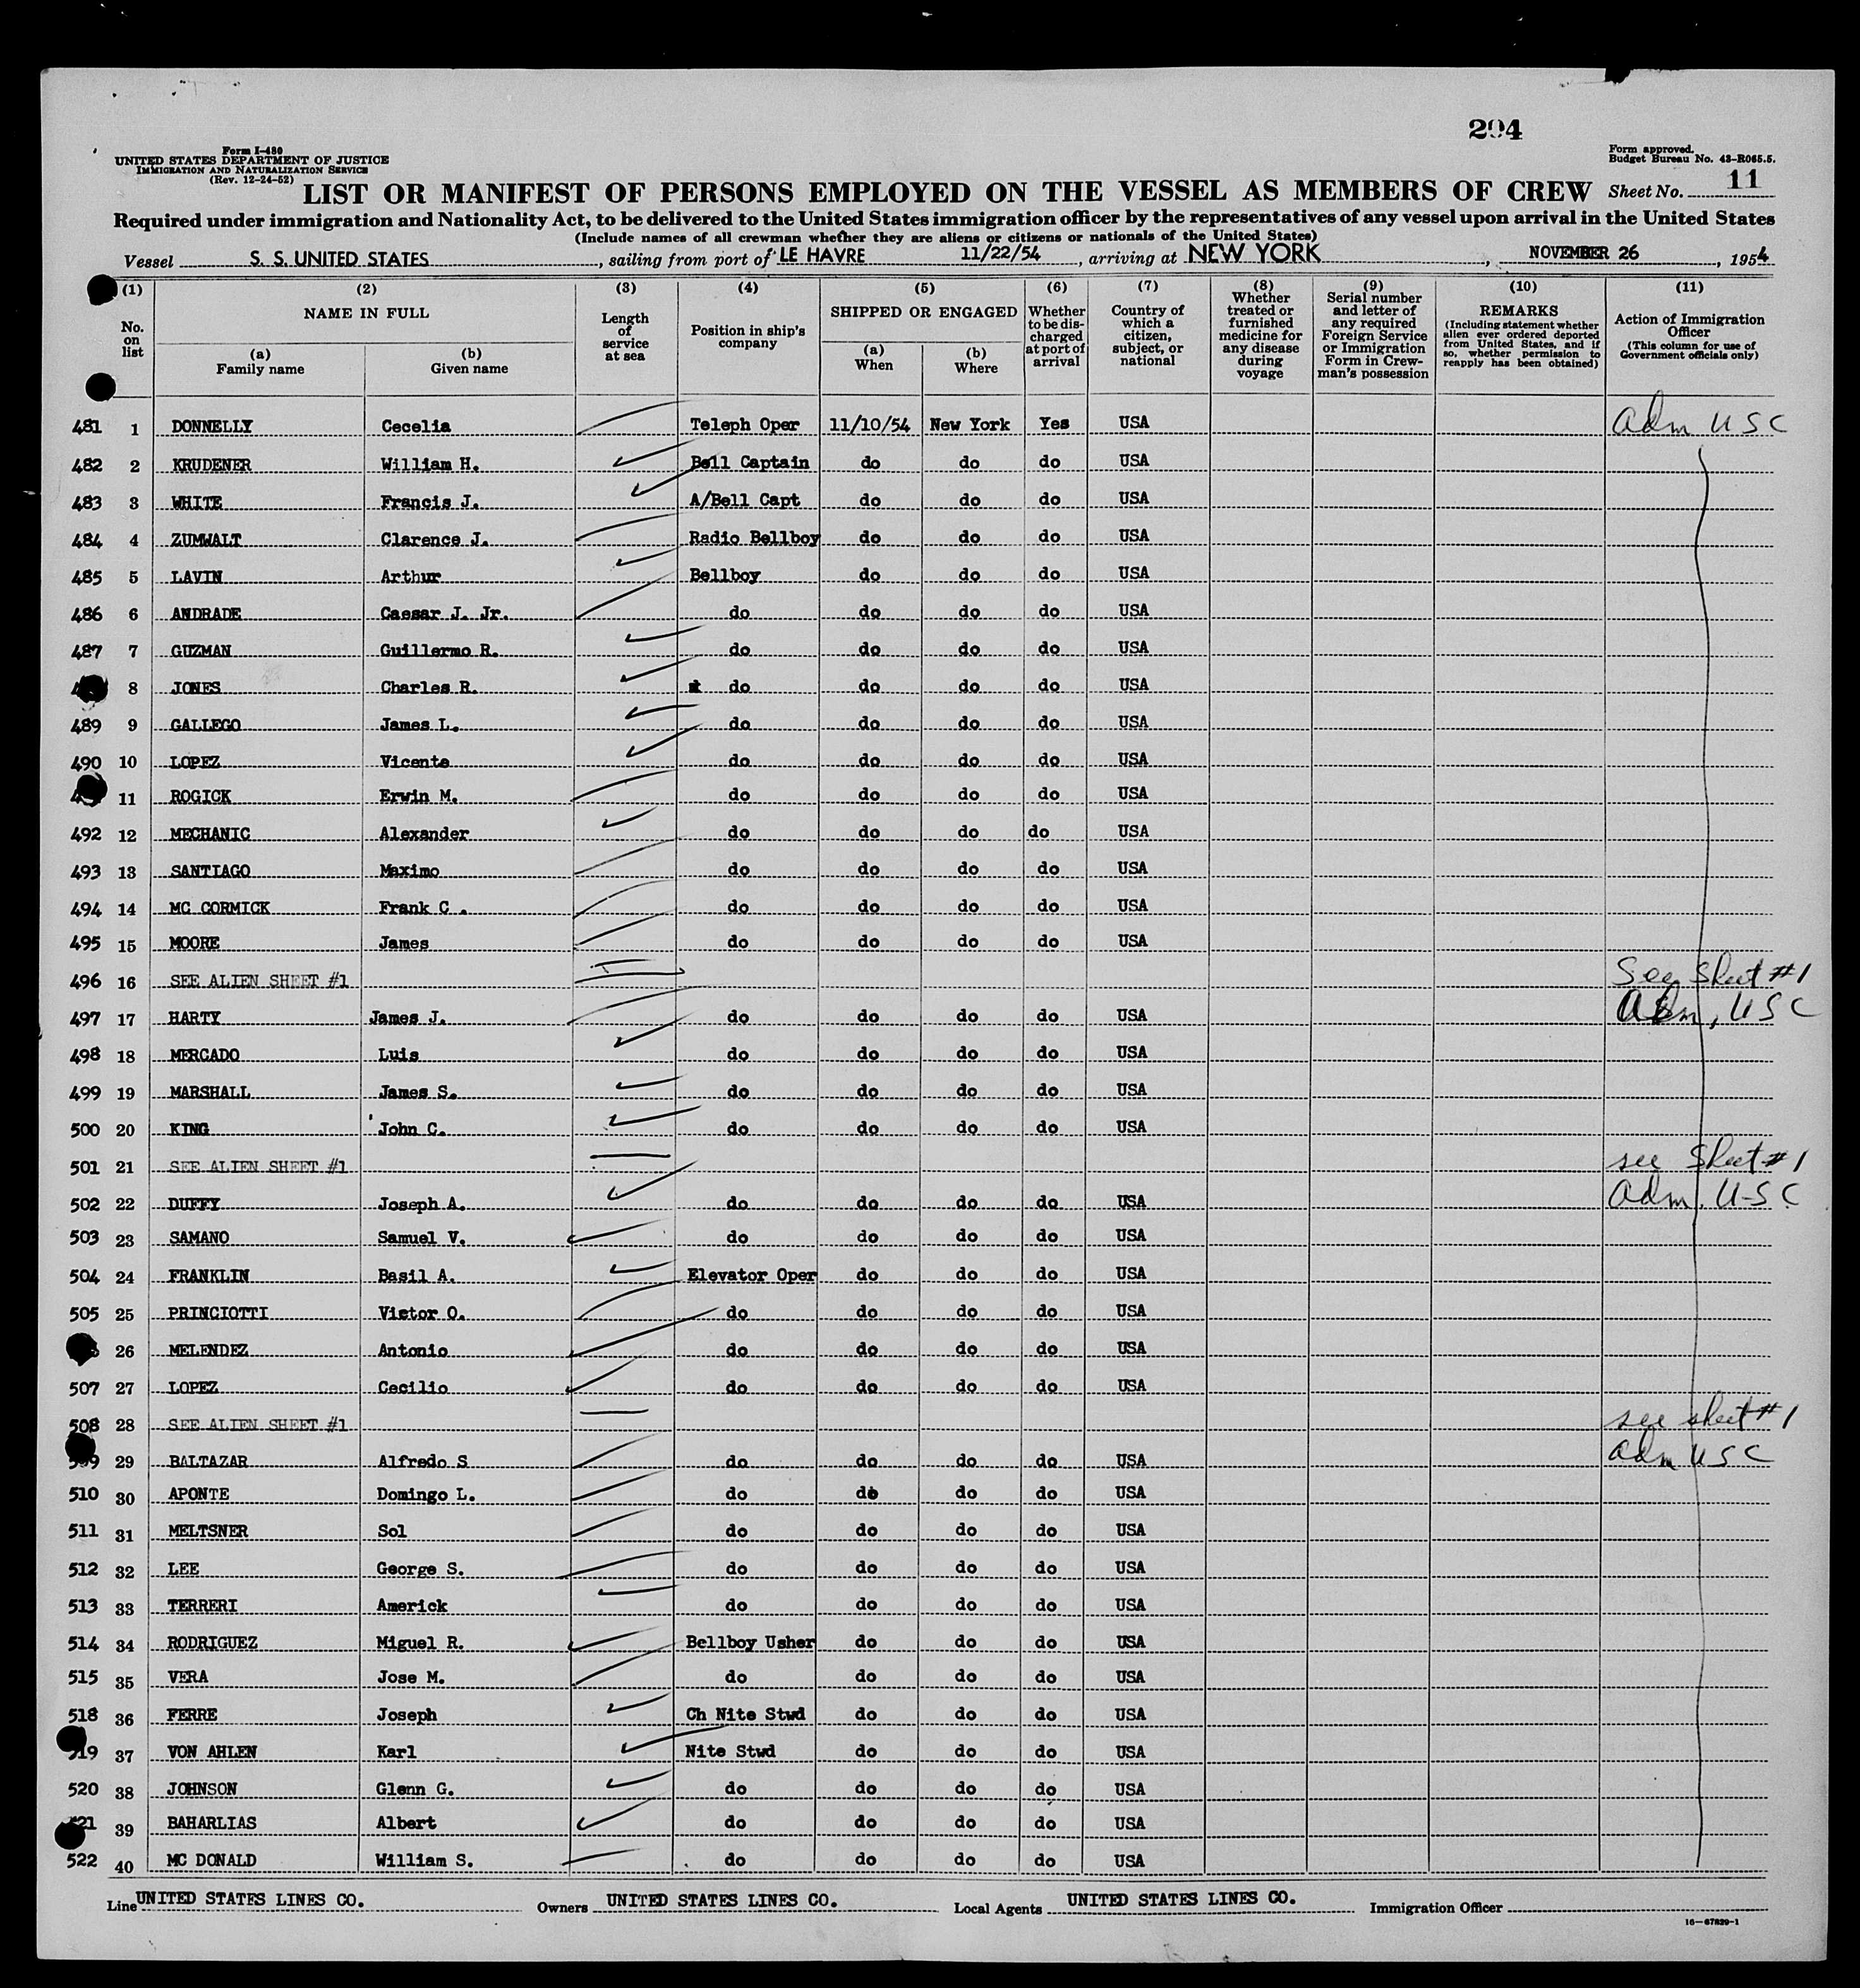 294
Form I-480
UNITED STATES DEPARTMENT OF JUSTICE
IMMIGRATION AND NATURALIZATION SERVICE
(Rev. 12-24-52)
Form approved.
Budget Bureau No. 43-R065.5.
LIST OR MANIFEST OF PERSONS EMPLOYED ON THE VESSEL AS MEMBERS OF CREW Sheet No. 11
Required under immigration and Nationality Act, to be delivered to the United States immigration officer by the representatives of any vessel upon arrival in the United States
(Include names of all crewman whether they are aliens or citizens or nationals of the United States)
Vessel S. S. UNITED STATES, sailing from port of LE HAVRE 11/22/54, arriving at NEW YORK, NOVEMBER 26, 1954
(1) (2) (3) (4) (5) (6) (7) (8) (9) (10) (11)
No. on list
NAME IN FULL
(a) Family name
(b) Given name
Length of service at sea
Position in ship's company
SHIPPED OR ENGAGED
(a) When
(b) Where
Whether to be discharged at port of arrival
Country of which a citizen, subject, or national
Whether treated or furnished medicine for any disease during voyage
Serial number and letter of any required Foreign Service or Immigration Form in Crewman's possession
REMARKS
(Including statement whether alien ever ordered deported from United States, and if so, whether permission to reapply has been obtained)
Action of Immigration Officer
(This column for use of Government officials only)
481 1 DONNELLY Cecelia Teleph Oper 11/10/54 New York Yes USA Adm USC
482 2 KRUDENER William H. Bell Captain do do do USA
483 3 WHITE Francis J. A/Bell Capt do do do USA
484 4 ZUMWALT Clarence J. Radio Bellboy do do do USA
485 5 LAVIN Arthur Bellboy do do do USA
486 6 ANDRADE Caesar J. Jr. do do do do USA
487 7 GUZMAN Guillermo R. do do do do USA
8 JONES Charles R. do do do do USA
489 9 GALLEGO James L. do do do do USA
490 10 LOPEZ Vicente do do do do USA
11 ROGICK Erwin M. do do do do USA
492 12 MECHANIC Alexander do do do do USA
493 13 SANTIAGO Maximo do do do do USA
494 14 MC CORMICK Frank C . do do do do USA
495 15 MOORE James do do do do USA
496 16 SEE ALIEN SHEET #1 See Sheet #1
497 17 HARTY James J. do do do do USA Adm, USC
498 18 MERCADO Luis do do do do USA
499 19 MARSHALL James S. do do do do USA
500 20 KING John C. do do do do USA
501 21 SEE ALIEN SHEET #1 see Sheet #1
502 22 DUFFY Joseph A. do do do do USA Adm. U-SC
503 23 SAMANO Samuel V. do do do do USA
504 24 FRANKLIN Basil A. Elevator Oper do do do USA
505 25 PRINCIOTTI Victor O. do do do do USA
26 MELENDEZ Antonio do do do do USA
507 27 LOPEZ Cecilio do do do do USA
508 28 SEE ALIEN SHEET #1 see sheet #1
509 29 BALTAZAR Alfredo S do do do do USA Adm USC
510 30 APONTE Domingo L. do do do do USA
511 31 MELTSNER Sol do do do do USA
512 32 LEE George S. do do do do USA
513 33 TERRERI Americk do do do do USA
514 34 RODRIGUEZ Miguel R. Bellboy Usher do do do USA
515 35 VERA Jose M. do do do do USA
518 36 FERRE Joseph Ch Nite Stwd do do do USA
519 37 VON AHLEN Karl Nite Stwd do do do USA
520 38 JOHNSON Glenn G. do do do do USA
521 39 BAHARLIAS Albert do do do do USA
522 40 MC DONALD William S. do do do do USA
Line UNITED STATES LINES CO. Owners UNITED STATES LINES CO. Local Agents UNITED STATES LINES CO. Immigration Officer
16-67829-1